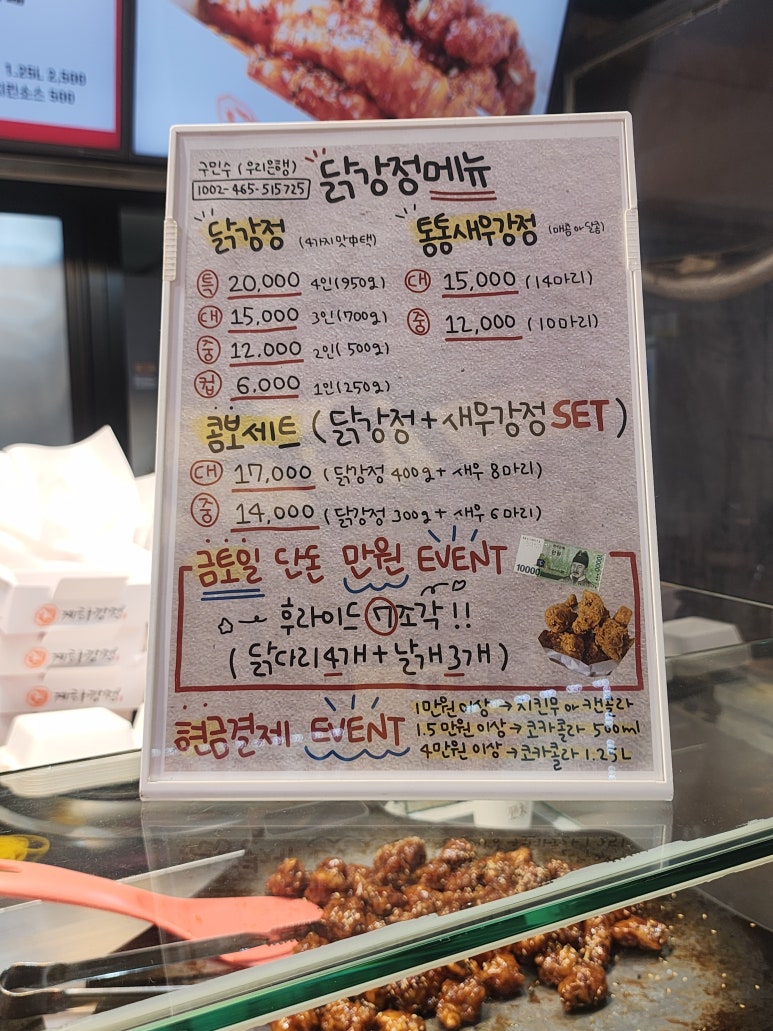 1.25L 2,500
소스 500
구민수 (우리은행)
1002-465-515725
닭강정메뉴
닭강정 (4가지맛中택)
특 20,000 4인(950g)
대 15,000 3인(700g)
중 12.000 2인(500g)
컵 6.000 1인(250g)
통통새우강정 (매콤 or 달콤)
대 15,000 (14마리)
중 12,000 (10마리)
콤보세트 (닭강정+새우강정 SET)
대 17,000 (닭강정 400g+ 새우 8마리)
중 14,000 (닭강정 300g+ 새우 6마리)
금토일 단돈 만원 EVENT
10000
후라이드 7조각!!
(닭다리 4개+날개 3개)
현금결제 EVENT
1만원 이상→치킨무 or 캔콜라
1.5만원 이상→코카콜라 500ml
4만원 이상→코카콜라 1.25L